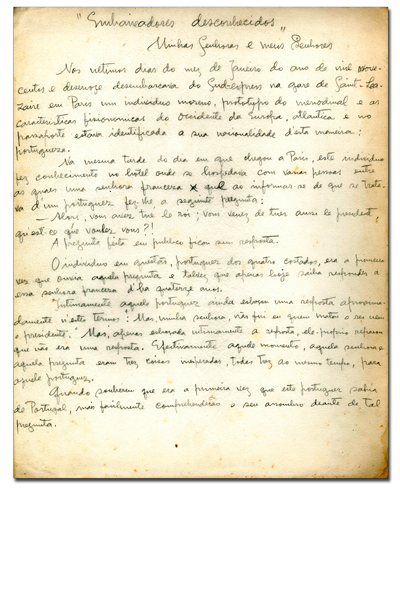 "Embaixadores desconhecidos"
Minhas Senhoras e meus Senhores
Nos ultimos dias do mez de Janeiro do ano de mil nove-
centos e dezenove desembarcava do Sud-express na gare de Saint-La-
zaire em Paris um individuo moreno, prototypo do meridional e as
caracteristicas fisionomicas do Occidente da Europa, atlantica e no
passaporte estava identificada a sua nacionalidade d'esta maneira:
portugueza.
Na mesma tarde do dia em que chegou a Paris, este individuo
fez conhecimento no hotel onde se hospedava com varias pessoas entre
as quaes uma senhora franceza x qual ao informar-se de que se trata-
va d'um portuguez fez-lhe a seguinte pergunta:
— Alors, vous avez tué le roi; vous venez de tuer aussi le président,
qu'est-ce que voulez vous?!
A pergunta feita em publico ficou sem resposta.
O individuo em questão, portuguez dos quatro costados, era a primeira
vez que ouvia aquela pergunta e talvez que apenas hoje saiba responder a
essa senhora franceza d'ha quatorze anos.
Intimamente aquele portuguez ainda esboçou uma resposta aproxima-
damente n'estes termos: "Mas, minha senhora, não fui eu quem matou o rei nem
o presidente." Mas, apenas esboçada intimamente a resposta, ele-proprio reparou
que não era uma resposta. Efectivamente aquele momento, aquela senhora e
aquela pergunta eram trez coisas inesperadas, todas trez ao mesmo tempo, para
aquele portuguez.
Quando souberem que era a primeira vez que este portuguez sahia
de Portugal, mais facilmente comprehenderão o seu assombro deante de tal
pergunta.